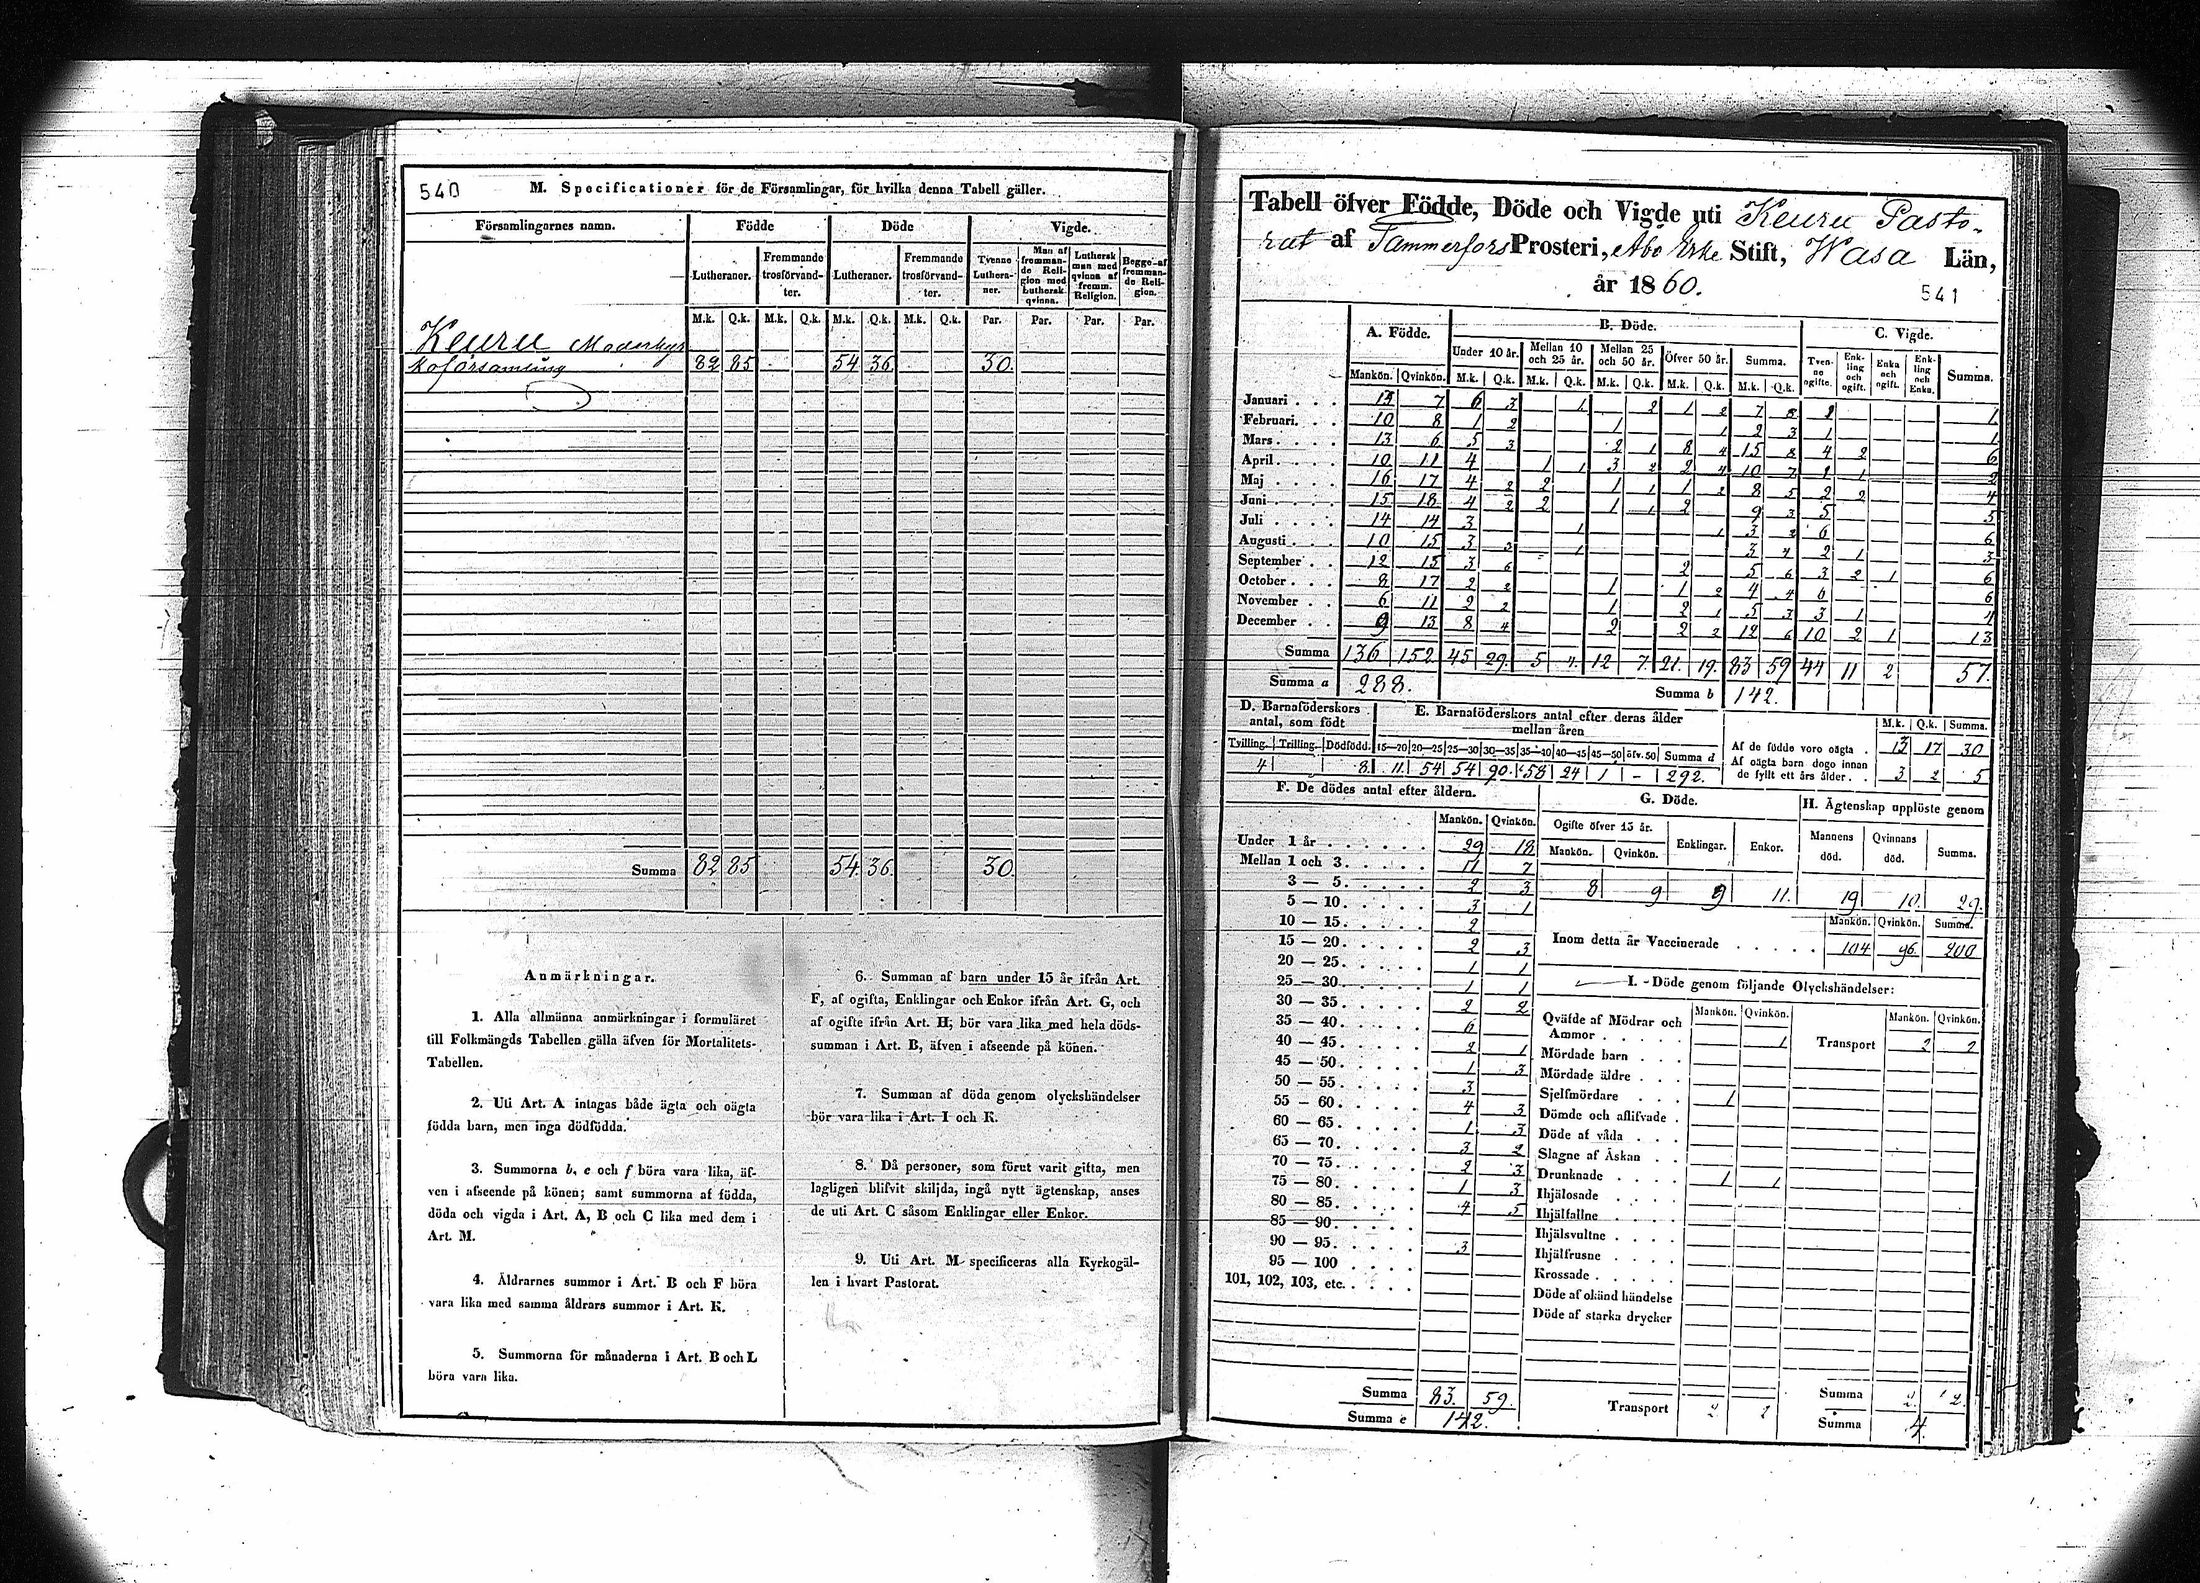 540
M. Specificationer för de Församlingar, för hvilka denna Tabell gäller.
Församlingarnes namn. Födde Döde Vigde.
Lutheraner. Fremmande trosförvandter. Lutheraner. Fremmande trosförvandter. Tvenne Lutheraner. Man af fremmande Religion med Luthersk qvinna. Luthersk man med qvinna af fremm. Religion. Begge af fremmande Religion.
M.k. Q.k. M.k. Q.k. M.k. Q.k. M.k. Q.k. Par. Par. Par. Par.
Keuru Moderkyr
koförsamling 82 85 54 36 30.
Summa 82 85 54 36 30.
Anmärkningar.
1. Alla allmänna anmärkningar i formuläret
till Folkmängds Tabellen gälla äfven för Mortalitets-
Tabellen.
2. Uti Art. A intagas både ägta och oägta
födda barn, men inga dödfödda.
3. Summorna b, e och f böra vara lika, äf-
ven i afseende på könen; samt summorna af födda,
döda och vigda i Art. A, B och C lika med dem i
Art. M.
4. Åldrarnes summor i Art. B och F böra
vara lika med samma åldrars summor i Art. K.
5. Summorna för månaderna i Art. B och L
böra vara lika.
6. Summan af barn under 15 år ifrån Art.
F, af ogifta, Enklingar och Enkor ifrån Art. G, och
af ogifte ifrån Art. H; bör vara lika med hela döds-
summan i Art. B, äfven i afseende på könen.
7. Summan af döda genom olyckshändelser
bör vara lika i Art. I och K.
8. Då personer, som förut varit gifta, men
lagligen blifvit skiljda, ingå nytt ägtenskap, anses
de uti Art. C såsom Enklingar eller Enkor.
9. Uti Art. M specificeras alla Kyrkogäl-
len i hvart Pastorat.
Tabell öfver Födde, Döde och Vigde uti Keuru Pasto-
rat af Tammerfors Prosteri, Åbo Erke Stift, Wasa Län,
år 1860.
541
A. Födde. B. Döde. C. Vigde.
Under 10 år. Mellan 10 och 25 år. Mellan 25 och 50 år. Öfver 50 år. Summa. Tvenne ogifte. Enkling och ogift. Enka och ogift. Enkling och Enka. Summa.
Mankön. Qvinkön. M.k. Q.k. M.k. Q.k. M.k. Q.k. M.k. Q.k. M.k. Q.k.
Januari 13 7 6 3 1 2 1 2 7 8 2
Februari 10 8 1 2 1 1 2 3 1 1
Mars 13 6 5 3 2 1 8 4 15 8 4 2 6
April 10 11 4 1 1 3 2 2 4 10 7 1 2
Maj 16 17 4 2 2 1 1 1 2 8 5 2 2 4
Juni 15 18 4 2 2 1 1 2 9 3 5 5
Juli 14 14 3 1 1 3 2 6 6
Augusti 10 15 3 3 1 3 4 2 1 3
September 12 15 3 6 2 5 6 3 2 1 6
October 8 17 2 2 1 1 2 4 4 6 6
November 6 11 2 2 1 2 1 5 3 3 1 4
December 9 13 8 4 2 2 2 12 6 10 2 1 13
Summa 136 152 45 29 5 4 12 7 21 19 83 59 44 11 2 57.
Summa a 288. Summa b 142.
D. Barnaföderskors antal, som födt
Tvilling. Trilling. Dödfödd.
4 8
E. Barnaföderskors antal efter deras ålder mellan åren
15—20 20—25 25—30 30—35 35—40 40—45 45—50 öfv. 50 Summa d
11. 54 54 90. 58 24 1 - 292.
M.k. Q.k. Summa.
Af de födde voro oägta 13 17 30
Af oägta barn dogo innan
de fyllt ett års ålder 3 2 5
F. De dödes antal efter åldern.
Mankön. Qvinkön.
Under 1 år 29 18
Mellan 1 och 3 11 7
3 — 5 2 3
5 — 10 3 1
10 — 15 2
15 — 20 2 3
20 — 25 1 1
25 — 30 1 1
30 — 35 2 2
35 — 40 6
40 — 45 2 1
45 — 50 1 3
50 — 55 3
55 — 60 4 3
60 — 65 1 3
65 — 70 3 2
70 — 75 2 3
75 — 80 1 3
80 — 85 4 5
85 — 90
90 — 95 3
95 — 100
101, 102, 103, etc.
Summa 83. 59.
Summa e 142.
G. Döde.
Ogifte öfver 15 år. Enklingar. Enkor.
Mankön. Qvinkön.
8 9 9 11.
H. Ägtenskap upplöste genom
Mannens död. Qvinnans död. Summa.
19 10 29.
Mankön. Qvinkön. Summa.
Inom detta år Vaccinerade 104 96 200
I. Döde genom följande Olyckshändelser:
Mankön. Qvinkön. Mankön. Qvinkön.
Qväfde af Mödrar och
Ammor 1 Transport 2 2
Mördade barn
Mördade äldre
Sjelfmördare 1
Dömde och aflifvade
Döde af våda
Slagne af Åskan
Drunknade 1 1
Ihjälosade
Ihjälfallne
Ihjälsvultne
Ihjälfrusne
Krossade
Döde af okänd händelse
Döde af starka drycker
Transport 2 2 Summa 2 2.
Summa 4.